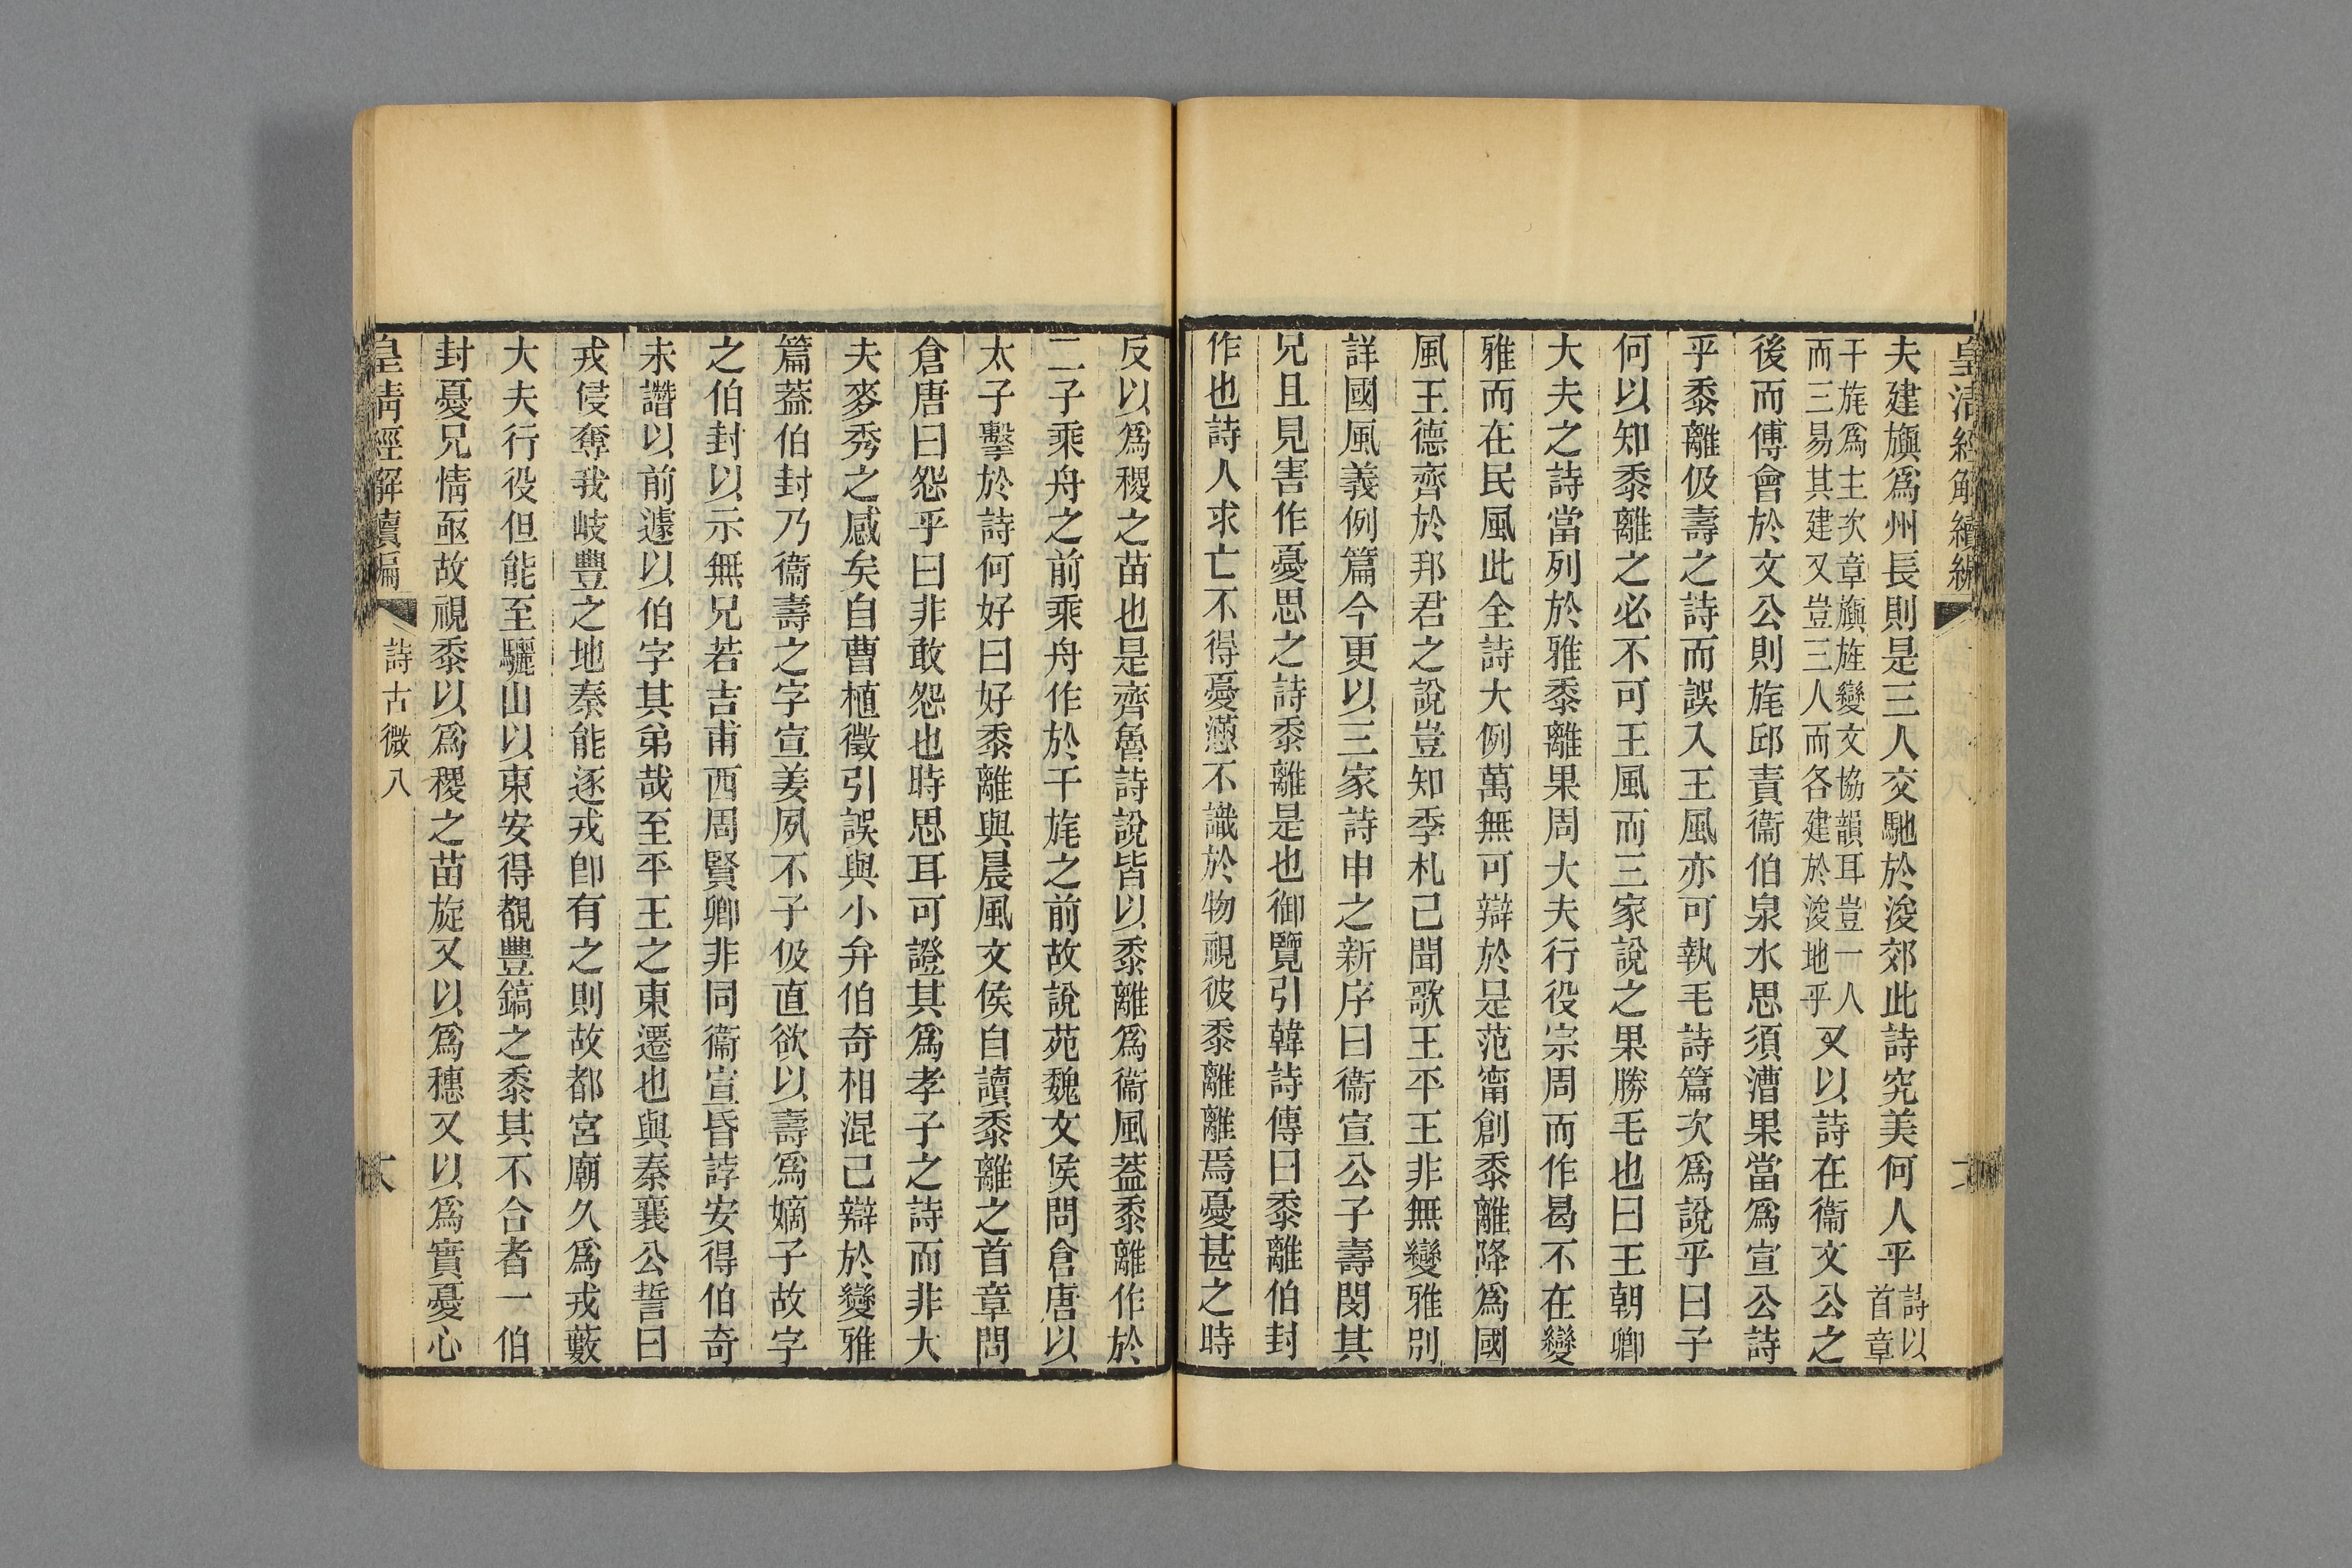 皇清經解續編
夫建旟爲州長則是三人交馳於浚郊此詩究美何人乎詩以首章
干旄爲主次章旟旌變文協韻耳豈一人而三易其建又豈三人而各建於浚地乎又以詩在衞文公之
後而傅會於文公則旄邱責衞伯泉水思須漕果當爲宣公詩
乎黍離伋壽之詩而誤入王風亦可執毛詩篇次爲說乎曰子
何以知黍離之必不可王風而三家說之果勝毛也曰王朝卿
大夫之詩當列於雅黍離果周大夫行役宗周而作曷不在變
雅而在民風此全詩大例萬無可辯於是范甯創黍離降爲國
風王德齊於邦君之說豈知季札已聞歌王平王非無變雅別
詳國風義例篇今更以三家詩申之新序曰衞宣公子壽閔其
兄且見害作憂思之詩黍離是也御覽引韓詩傳曰黍離伯封
作也詩人求亡不得憂懣不識於物視彼黍離離焉憂甚之時
反以爲稷之苗也是齊魯詩說皆以黍離爲衞風蓋黍離作於
二子乘舟之前乘舟作於干旄之前故說苑魏文侯問倉唐以
太子擊於詩何好曰好黍離與晨風文侯自讀黍離之首章問
倉唐曰怨乎曰非敢怨也時思耳可證其爲孝子之詩而非大
夫麥秀之感矣自曹植徵引誤與小弁伯奇相混已辯於變雅
篇蓋伯封乃衞壽之字宣姜夙不子伋直欲以壽爲嫡子故字
之伯封以示無兄若吉甫西周賢卿非同衞宣昏誖安得伯奇
未譖以前遽以伯字其弟哉至平王之東遷也與秦襄公誓曰
戎侵奪我岐豐之地秦能逐戎卽有之則故都宮廟久爲戎藪
大夫行役但能至驪山以東安得覩豐鎬之黍其不合者一伯
封憂兄情亟故視黍以爲稷之苗旋又以爲穗又以爲實憂心
皇清經解續編
詩古微八